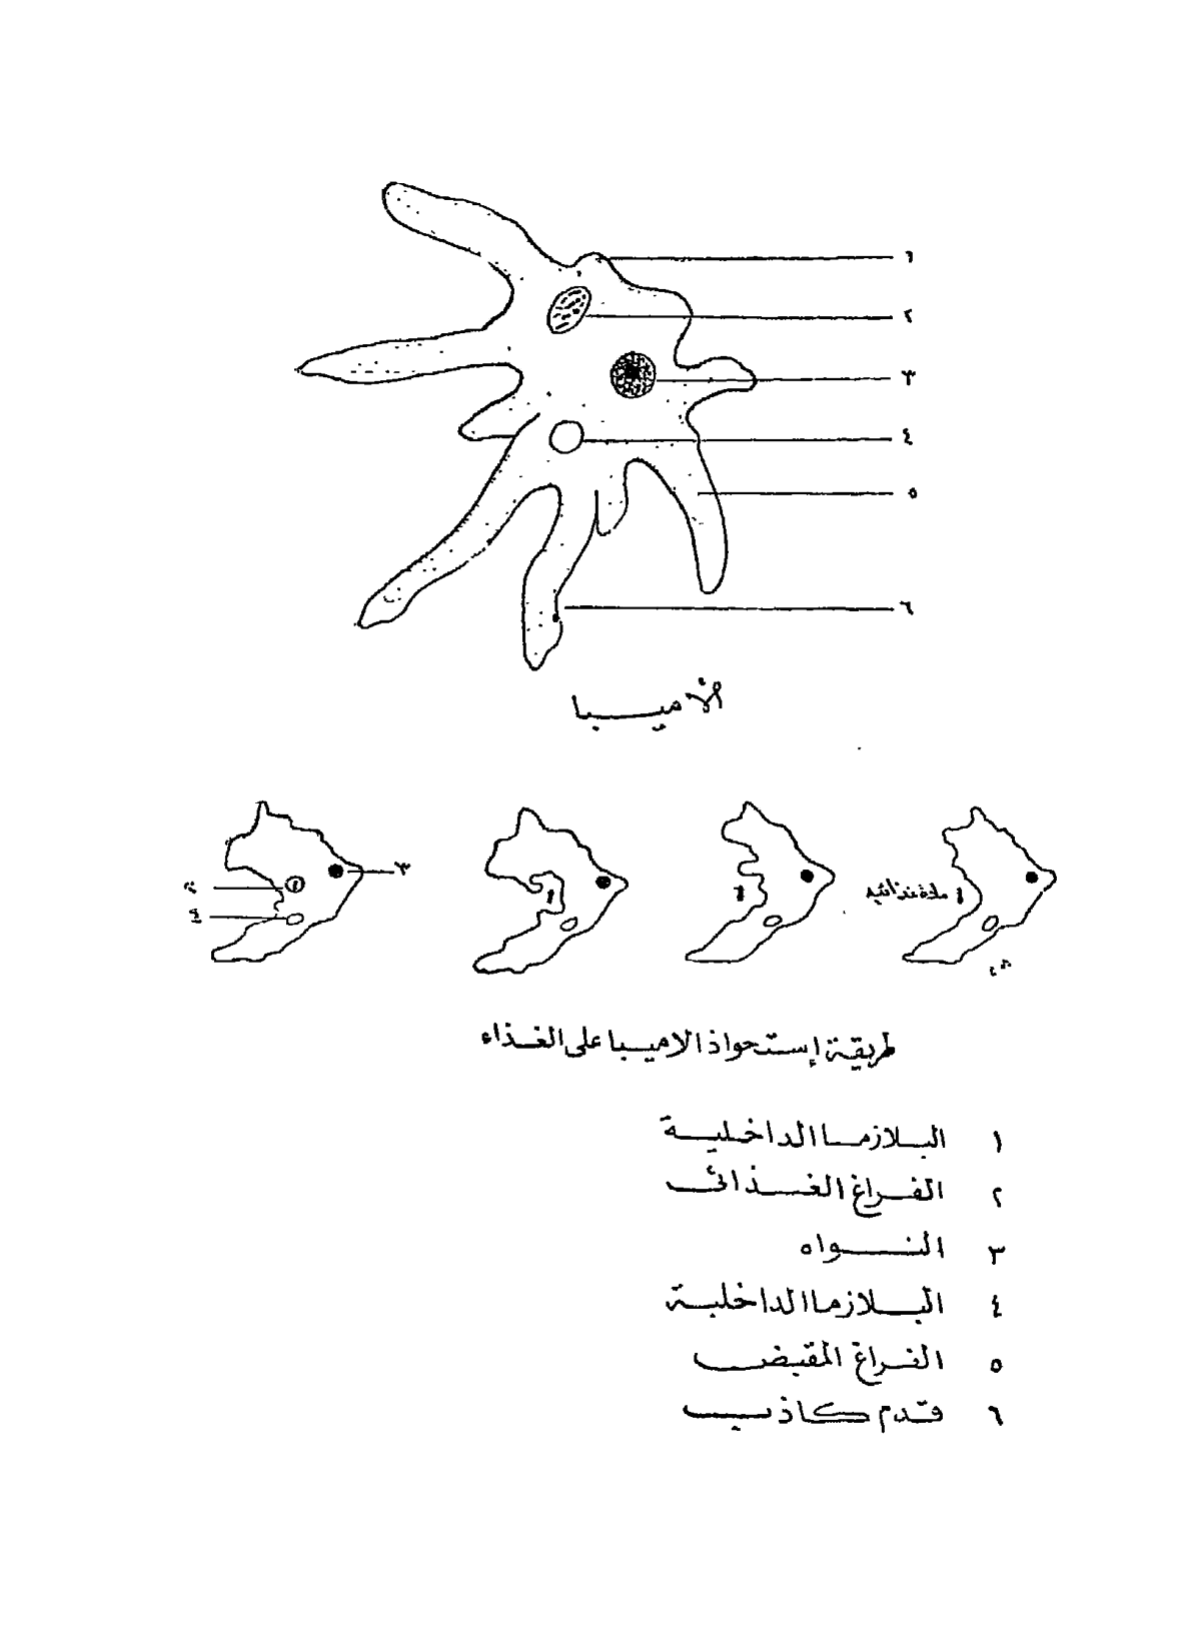 ١
٢
٣
٤
٥
٦
الأميبا
٣
٤
مادة غذائية
طريقة إستحواذ الاميبا على الغذاء
١ البلازما الداخلية
٢ الفراغ الغذائى
٣ النواه
٤ البلازما الداخلية
٥ الفراغ المقبض
٦ قدم كاذب